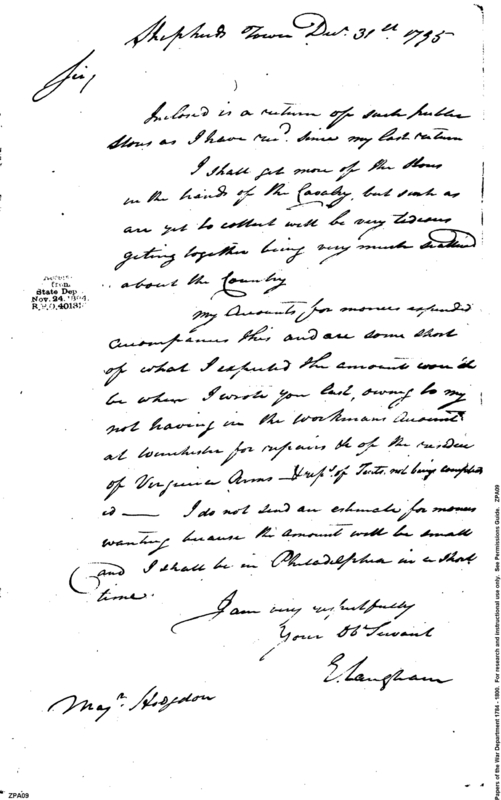 Shepherds Town Decr. 31st 1795
Sir,
Inclosed is a return of such public
Stores as I have recd. since my last return
I shall get more of the Stores
in the hands of the Cavalry, but such as
are yet to collect will be very tedeous
geting together being very much scattered
about the Country
My Accounts for moneys expended
accompanies this and are some short
of what I expected the amount wou'd
be when I wrote you last, owing to my
not having in the workmans Account
at Winchester for repairs &c of the residue
of Virginia Arms & reps. of Tents, not being compleat
ed — I do not send an estimate for moneys
wanting because the amount will be small
and I shall be in Philadelphia in a short
time.
I am very respectfully
Your Obt Servant
E. Langham
Majr. Hodgdon
from
State Dep
Nov. 24, 1894,
R.&P.O. 40131
Papers of the War Department 1784 - 1800. For research and instructional use only. See Permissions Guide. ZPA09
ZPA09